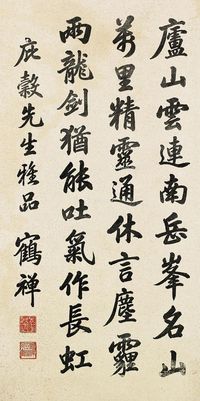 廬山雲連南岳峯名山
萬里精靈通休言塵霾
兩龍劍猶能吐氣作長虹
庇穀先生雅品
鶴禅